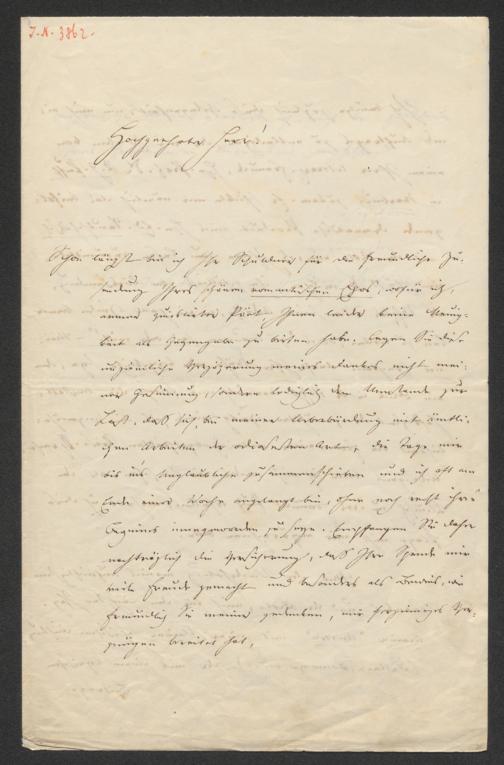 I.N. 3862.
Hochgeehrter Herr!
Schon längst bin ich Ihr Schuldner für die freundliche Zu-
sendung Ihres schönen romantischen Epos, wofür ich,
armer Poet Ihnen leider keine Neuig-
keit als Gegengabe zu bieten habe. Legen Sie diese
unziemliche Verzögerung meines Dankes nicht mei-
ner Gesinnung, sondern lediglich dem Umstande zur
Last, daß sich bei meiner Überbürdung mit ämtli-
chen Arbeiten der odiosesten Art, die Tage mir
bis ins Unglaubliche zusammenschieben und ich oft am
Ende einer Woche angelangt bin, ohne noch recht ihres
Beginns innegeworden zu seyn. Empfangen Sie daher
nachträglich die Versicherung, daß Ihre Spende mir
viele Freude gemacht und besonders als Beweis, wie
freundlich Sie meiner gedenken, mir Ver-
gnügen bereitet hat.